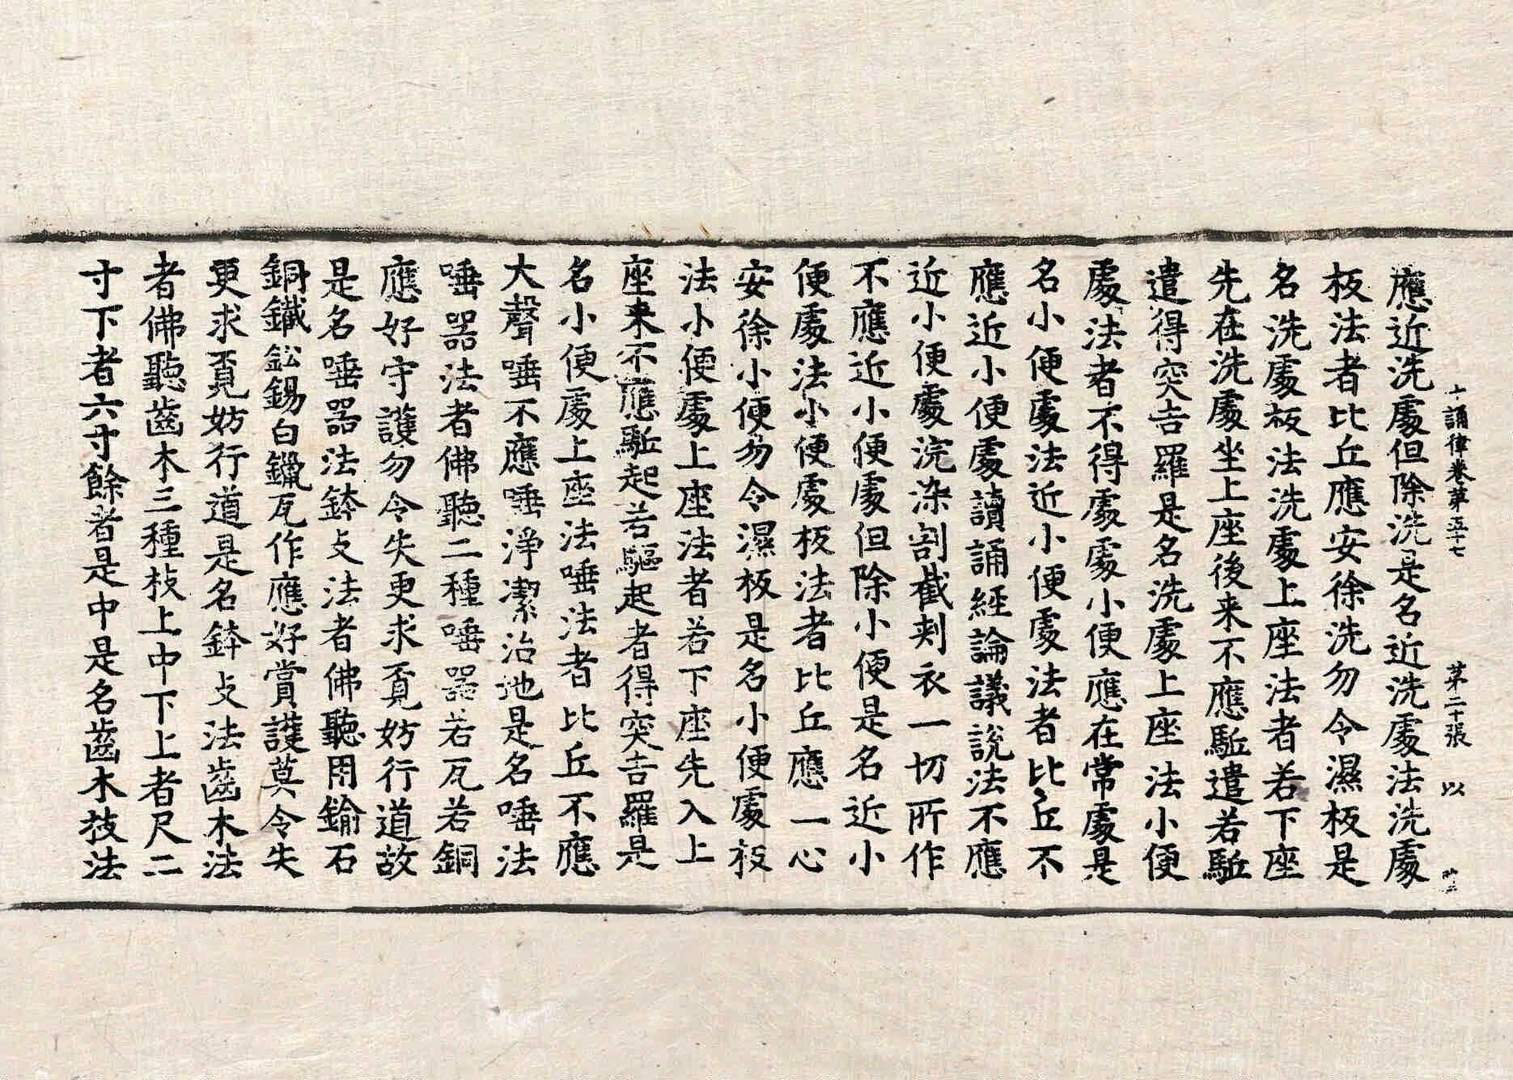 應近洗處但除洗是名近洗處法洗處
板法者比丘應安徐洗勿令濕板是
名洗處板法洗處上座法者若下座
先在洗處坐上座後来不應駈遣若駈
遣得突吉羅是名洗處上座法小便
處法者不得處處小便應在常處是
名小便處法近小便處法者比丘不
應近小便處讀誦經論議説法不應
近小便處浣染割截刾衣一切所作
不應近小便處但除小便是名近小
便處法小便處板法者比丘應一心
安徐小便勿令濕板是名小便處板
法小便處上座法者若下座先入上
座来不應駈起若驅起者得突吉羅是
名小便處上座法唾法者比丘不應
大聲唾不應唾淨潔治地是名唾法
唾器法者佛聽二種唾器若瓦若銅
應好守護勿令失更求覔妨行道故
是名唾器法鉢支法者佛聽用鍮石
銅鐵鈆錫白鑞瓦作應好賞護莫令失
更求覔妨行道是名鉢支法齒木法
者佛聽齒木三種枝上中下上者尺二
寸下者六寸餘者是中是名齒木枝法
十誦律卷苐五十七 苐二十張 以